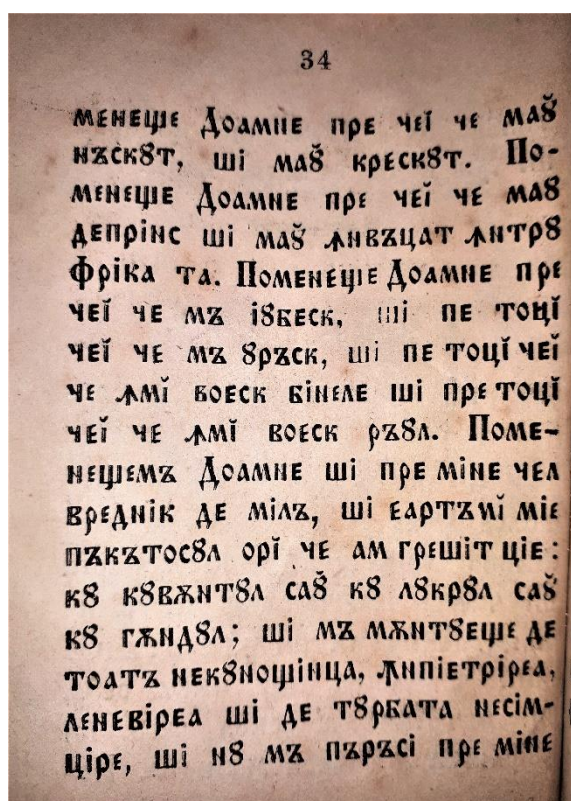 34
менеще Доамне пре чеї че маꙋ̆
нъскꙋт, ші маꙋ̆ крескꙋт. По-
менеще Доамне пре чеї че маꙋ̆
депрінс ші маꙋ̆ ꙟнвъцат ꙟнтрꙋ
фріка та. Поменеще Доамне пре
чеї че мъ іꙋбеск, ші пе тоцї
чеї че мъ ꙋръск, ші пе тоцї чеї
че ꙟмї воеск бінеле ші пре тоцї
чеї че ꙟмї воеск ръꙋл. Поме-
нещемъ Доамне ші пре міне чел
вреднік де мілъ, ші еартъмї міе
пъкътосꙋл орї че ам грешіт ціе:
кꙋ кꙋвѫнтꙋл саꙋ̆ кꙋ лꙋкрꙋл саꙋ̆
кꙋ гѫндꙋл; ші мъ мѫнтꙋеще де
тоатъ некꙋношінца, ꙟнпіетріреа,
леневіреа ші де тꙋрбата несім-
ціре, ші нꙋ мъ пъръсі пре міне